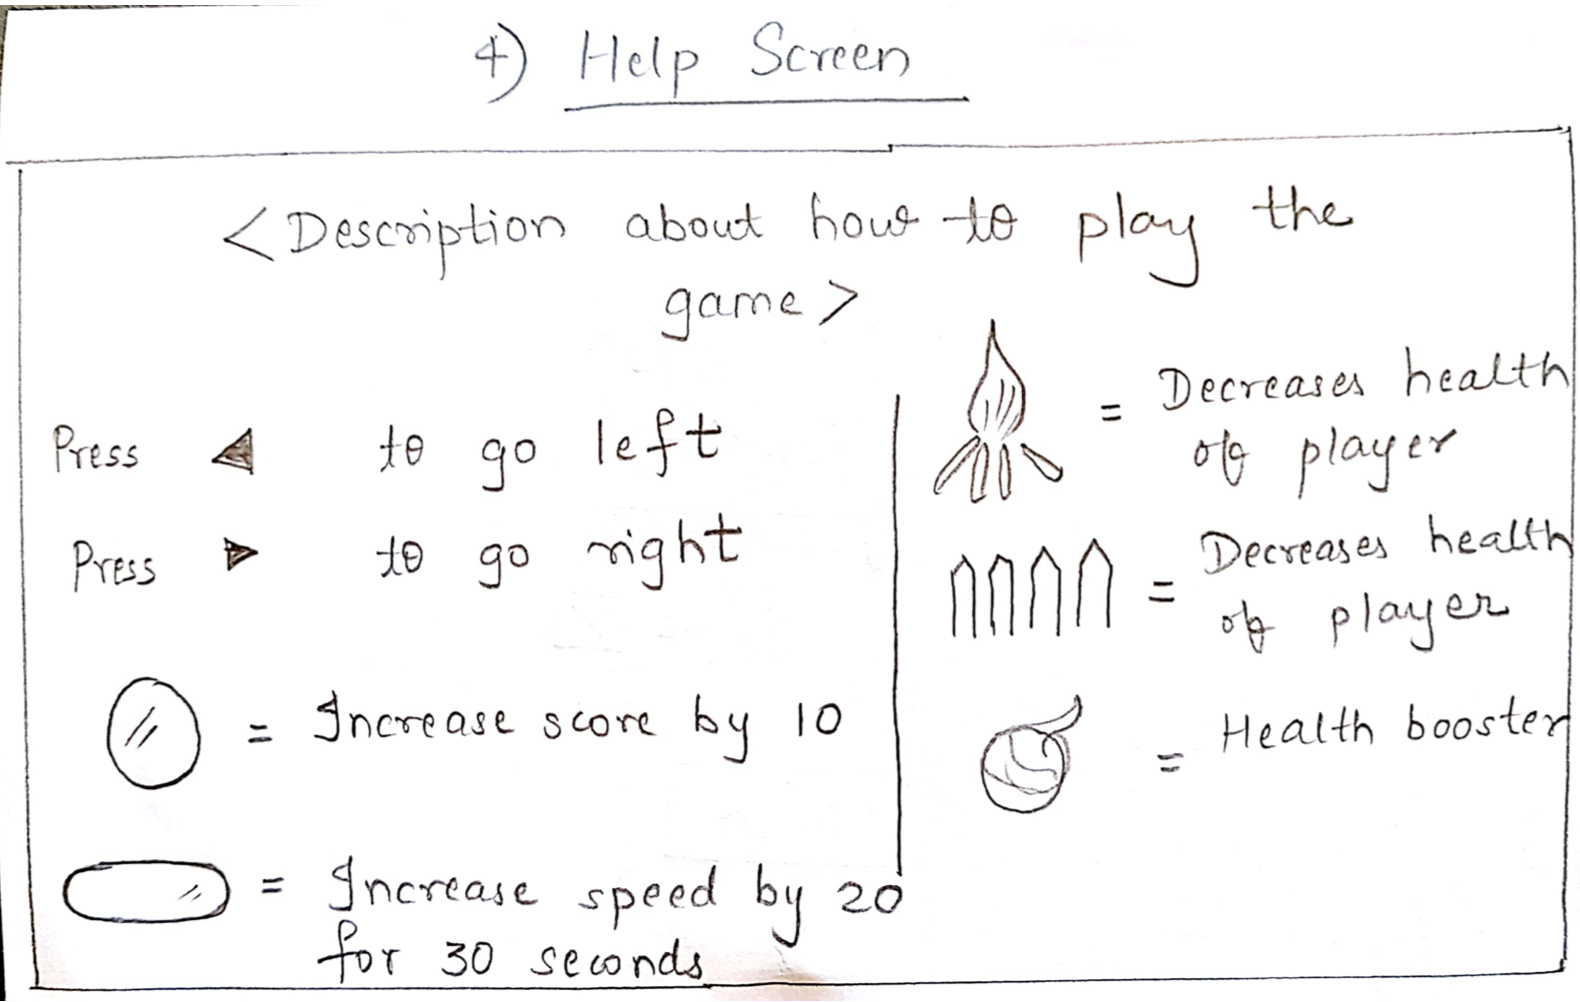 4) Help Screen
<Description about how to play the
game>
Press ◀ to go left
Press ▶ to go right
= Increase score by 10
= Increase speed by 20
for 30 seconds
= Decreases health
of player
= Decreases health
of player
= Health booster